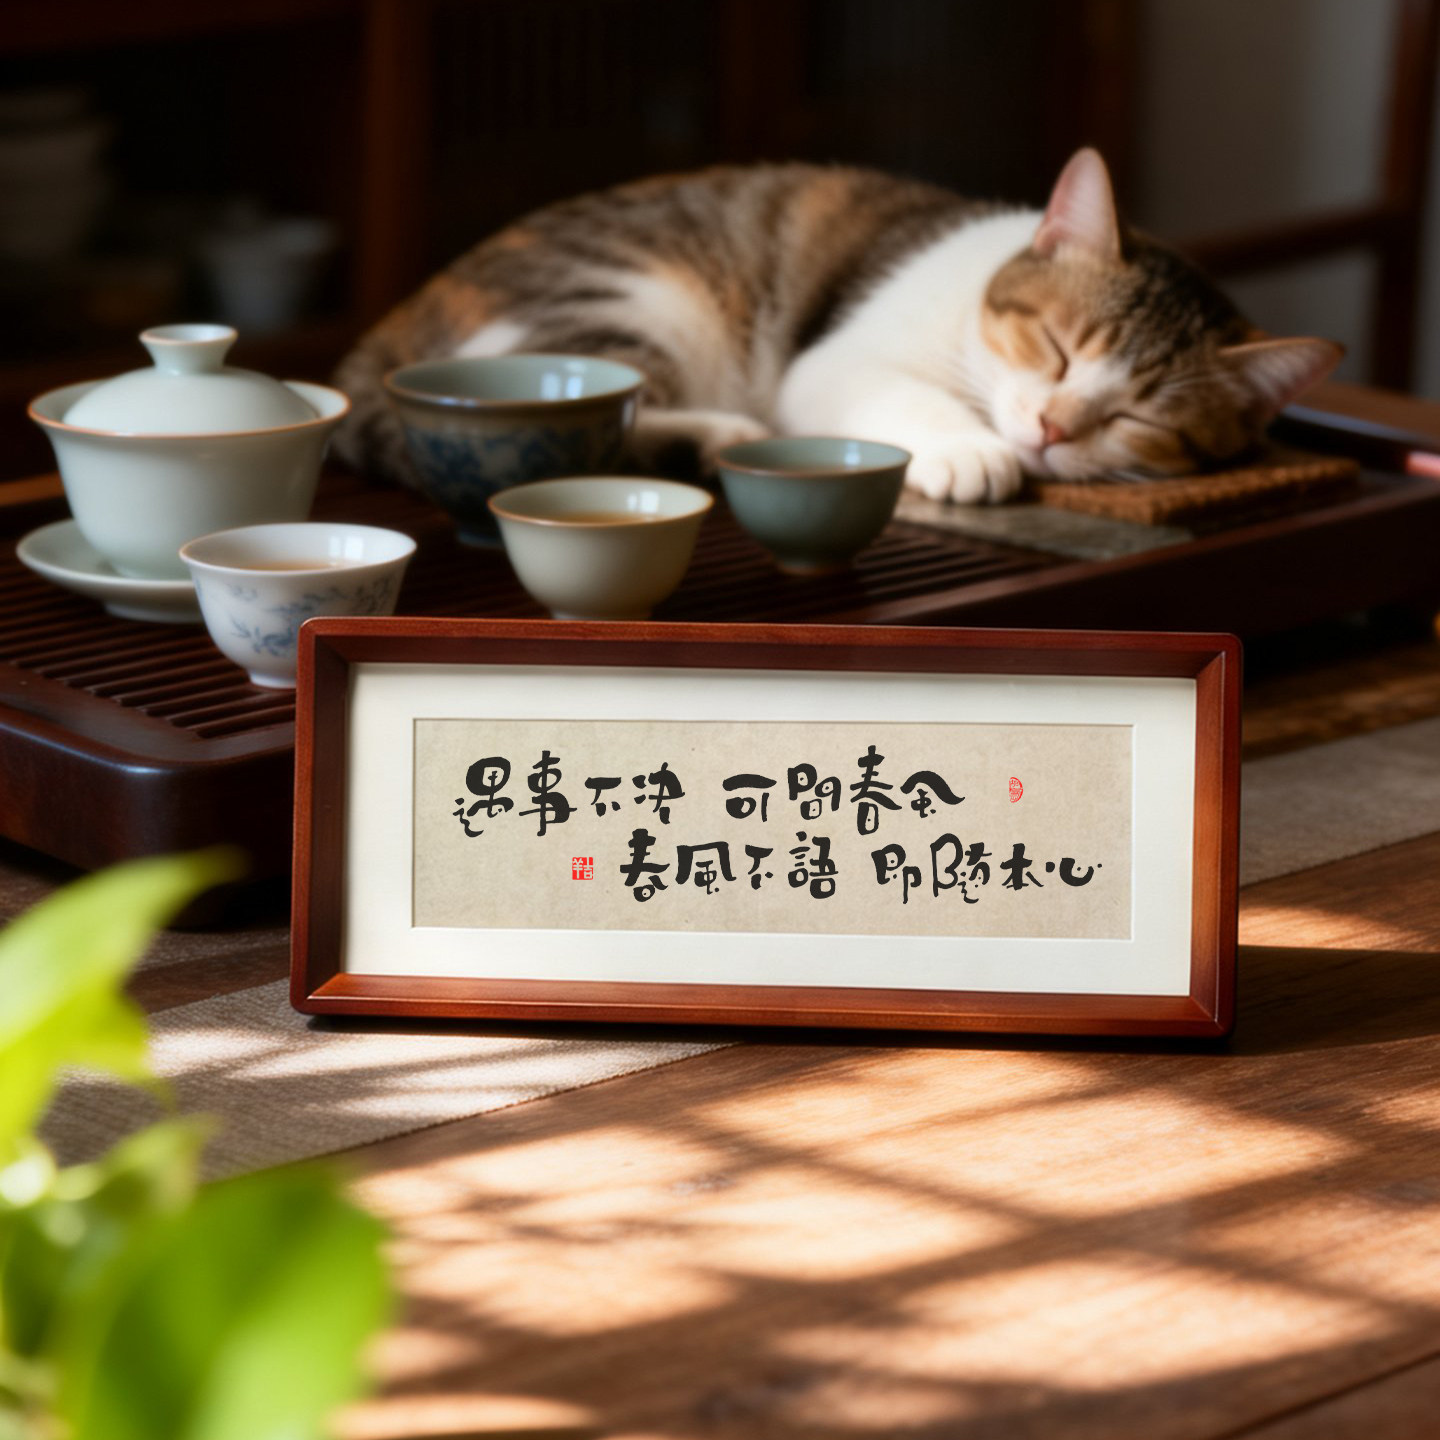 遇事不決 可問春風
春風不語 即隨本心